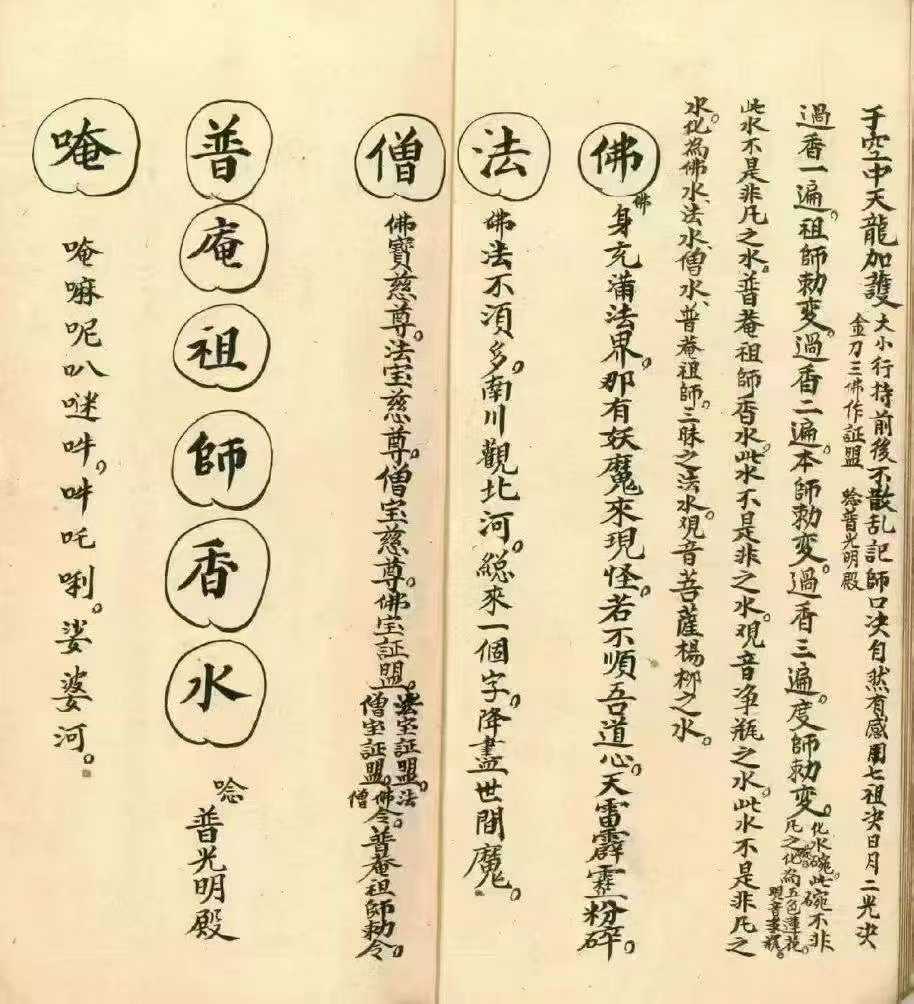 于空中天龍加護大小行持前後不散乱記師口决自然有感用七祖决日月二光决
金刀三佛作証盟 唸普光明殿
過香一遍。祖師勅变。過香二遍。本師勅变。過香三遍。度師勅变。化水碗。此碗不非
凡之碗化為五色蓮花
観音净瓶。
此水不是非凡之水。普菴祖師香水。此水不是非之水。观音净瓶之水。此水不是非凡之
水。化為佛水、法水僧水、普菴祖師。三昧之法水。观音菩薩楊柳之水。
佛 佛身充滿法界。那有妖魔來現怪。若不順吾道心。天雷霹靂粉碎。
法 佛法不須多。南川觀北河。縂來一個字。降盡世間魔。
僧 佛寶慈尊。法宝慈尊。僧宝慈尊。佛宝証盟。法宝証盟。僧宝証盟。佛法僧令。普菴祖師勅令。
普庵祖師香水 唸普光明殿
唵 唵嘛呢叭㘸吽。吽吒唎。娑婆河。